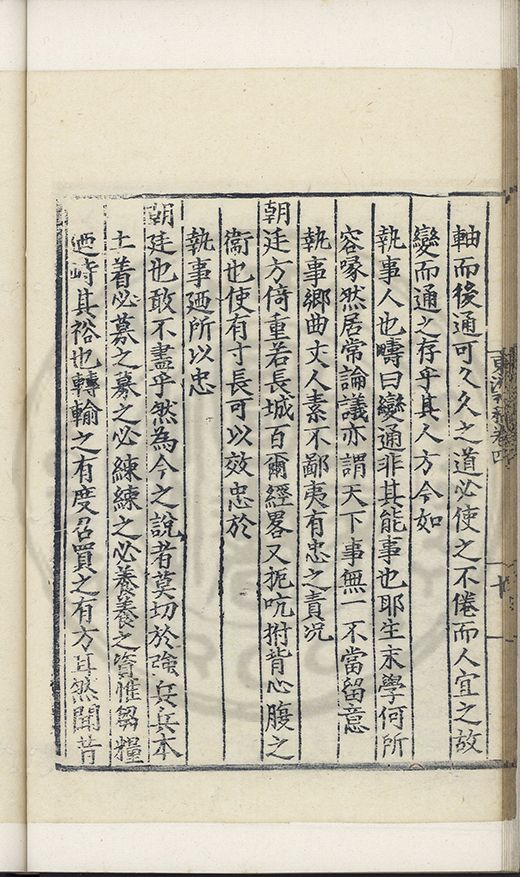 軸而後通可久久之道必使之不倦而人宜之故
變而通之存乎其人方今如
執事人也疇曰變通非其能事也耶生末學何所
容喙然居常論議亦謂天下事無一不當留意
執事鄉曲丈人素不鄙夷有忠之責况
朝廷方倚重若長城百爾經畧又扼吭拊背心腹之
衞也使有寸長可以效忠於
執事廼所以忠
朝廷也敢不盡乎然為今之說者莫切於強兵兵本
土着必募之募之必練練之必養養之資惟芻糧
廼峙其裕也轉輸之有度召買之有方且然聞昔